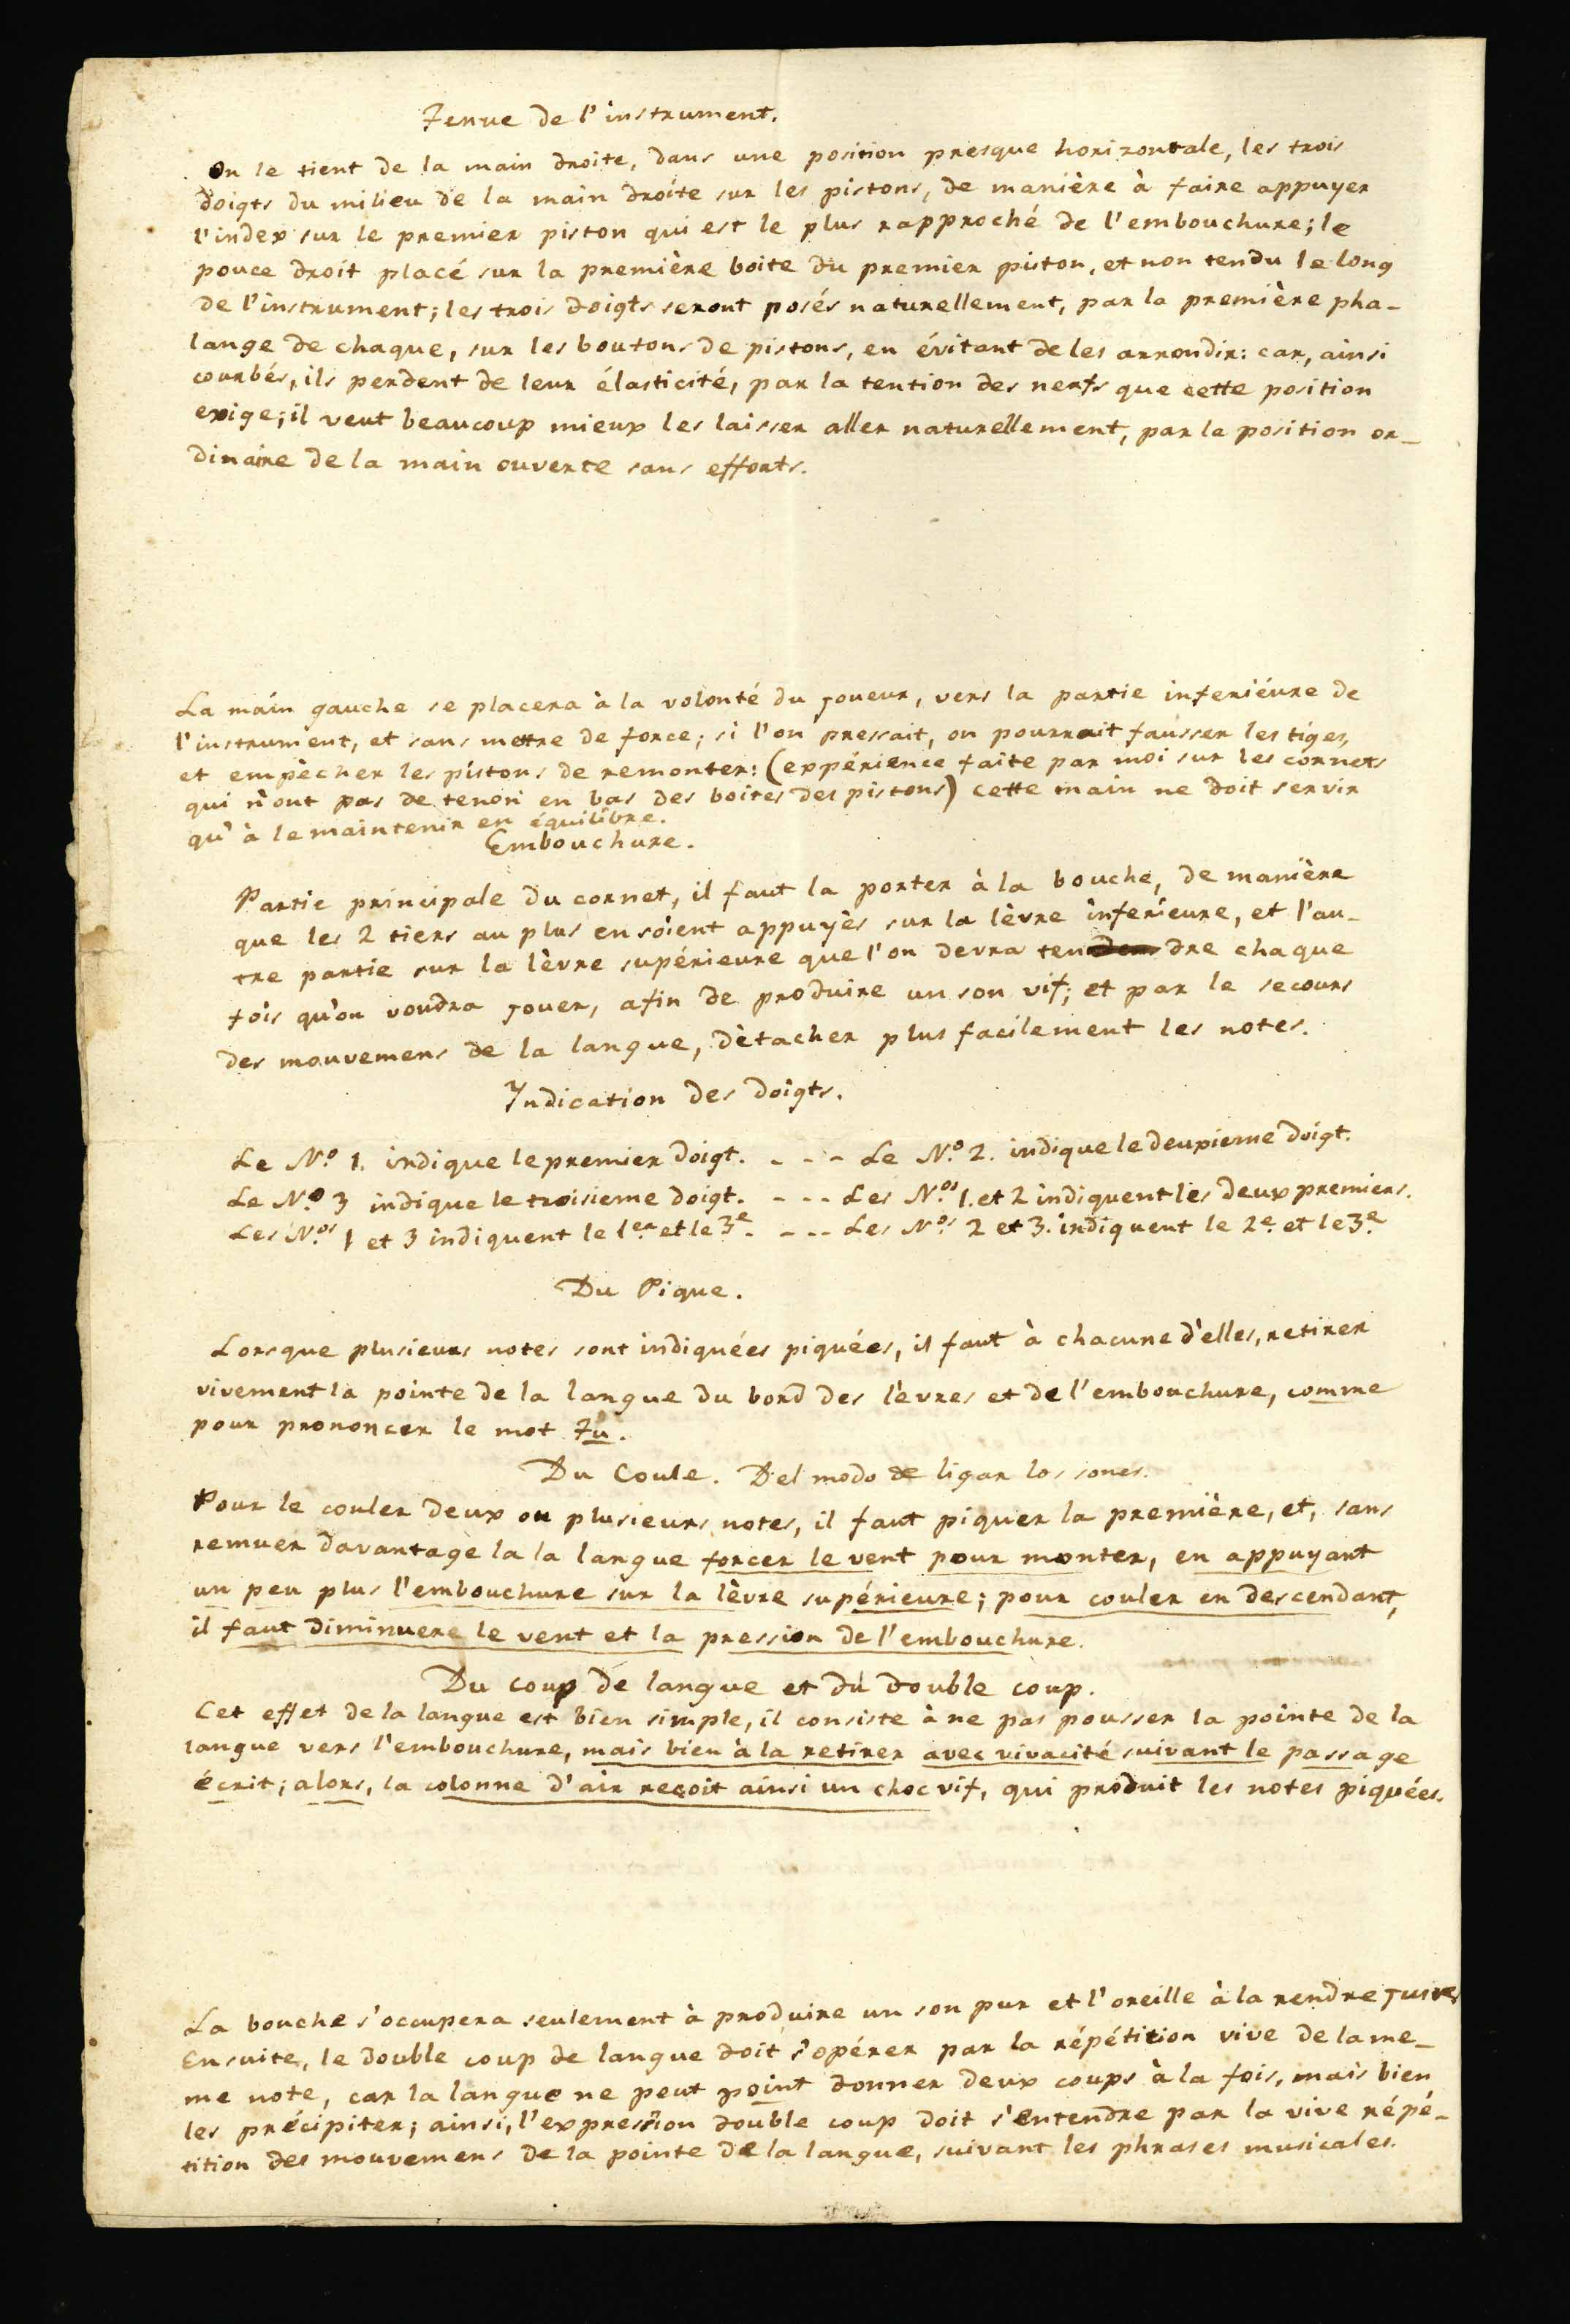 Tenue de l'instrument.
On le tient de la main droite, dans une position presque horizontale, les trois
doigts du milieu de la main droite sur les pistons, de manière à faire appuyer
l'index sur le premier piston qui est le plus rapproché de l'embouchure; le
pouce droit placé sur la première boite du premier piston, et non tendu le long
de l'instrument; les trois doigts seront posés naturellement, par la première pha-
lange de chaque, sur les boutons de pistons, en évitant de les arrondir: car, ainsi
courbés, ils perdent de leur élasticité, par la tention des nerfs que cette position
exige; il veut beaucoup mieux les laisser aller naturellement, par la position or-
dinaire de la main ouverte sans efforts.
La main gauche se placera à la volonté du joueur, vers la partie inferiéure de
l'instrument, et sans mettre de force; si l'on pressait, on pourrait fausser les tiges,
et empècher les pistons de remonter: (expérience faite par moi sur les cornets
qui n'ont pas de tenon en bas des boites des pistons) cette main ne doit servir
qu'à le maintenir en équilibre.
Embouchure.
Partie principale du cornet, il faut la porter à la bouche, de manière
que les 2 tiers au plus en soient appuyès sur la lèvre inferieure, et l'au-
tre partie sur la lèvre supérieure que l'on devra tendre chaque
fois qu'on voudra jouer, afin de produire un son vif; et par le secours
des mouvemens de la langue, dètacher plus facilement les notes.
Indication des doigts.
Le N.º 1. indique le premier doigt. - - - Le N.º 2. indique le deuxieme doigt.
Le N.º 3 indique le troisieme doigt. - - - Les N.ºs 1. et 2 indiquent les deux premiers.
Les N.ºs 1 et 3 indiquent le 1er et le 3e. - - - Les N.ºs 2 et 3. indiquent le 2e. et le 3e.
Du Pique.
Lorsque plusieurs notes sont indiquées piquées, il faut à chacune d'elles, retirer
vivement la pointe de la langue du bord des lèvres et de l'embouchure, comme
pour prononcer le mot Tu.
Du Coule. Del modo de ligar los sones.
Pour le couler deux ou plusieurs notes, il faut piquer la première, et, sans
remuer davantage la la langue forcer le vent pour monter, en appuyant
un peu plus l'embouchure sur la lèvre supérieure; pour couler en descendant,
il faut diminuere le vent et la pression de l'embouchure.
Du coup de langue et du double coup.
Cet effet de la langue est bien simple, il consiste à ne pas pousser la pointe de la
langue vers l'embouchure, mais bien à la retirer avec vivacité suivant le passage
écrit; alors, la colonne d'air reçoit ainsi un choc vif, qui produit les notes piquées.
La bouche s'occupera seulement à produire un son pur et l'oreille à la rendre juste,
Ensuite, le double coup de langue doit s'opérer par la répétition vive de la me-
me note, car la langue ne peut point donner deux coups à la fois, mais bien
les précipiter; ainsi, l'expression double coup doit s'entendre par la vive répé-
tition des mouvemens de la pointe de la langue, suivant les phrases musicales.